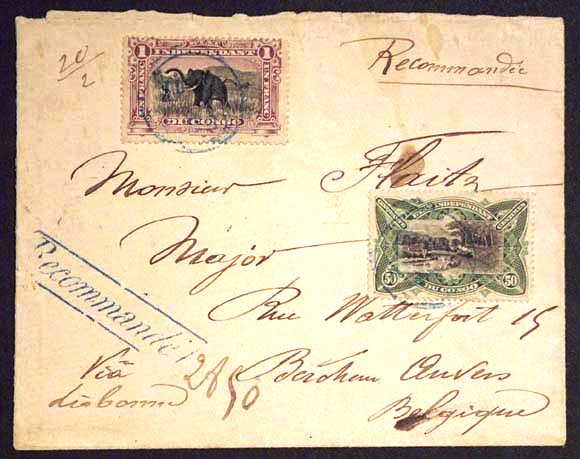 20/2
Recommandée
1 INDEPENDANT 1
UN FRANC UN FRANC
DU CONGO
Monsieur Flaitz
Major
ETAT INDEPENDANT
CENTIMES CENTIMES
50 DU CONGO 50
Recommandé
Rue Watterfort 15
Via
Lisbonne
28 50
Berchem Anvers
Belgique